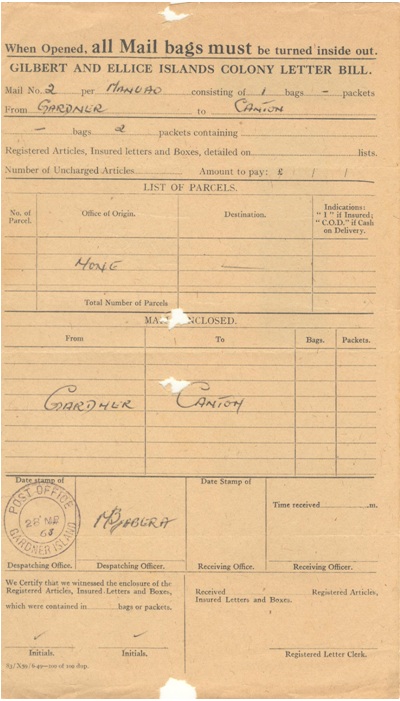 When Opened, all Mail bags must be turned inside out.
GILBERT AND ELLICE ISLANDS COLONY LETTER BILL.
Mail No. 2 per MANUAO consisting of 1 bags - packets
From GARDNER to CANTON
- bags 2 packets containing
Registered Articles, Insured letters and Boxes, detailed on lists.
Number of Uncharged Articles Amount to pay: £ / /
LIST OF PARCELS.
No. of Parcel. Office of Origin. Destination. Indications: "I" if Insured; "C.O.D." if Cash on Delivery.
NONE
Total Number of Parcels
ENCLOSED.
From To Bags. Packets.
GARDNER CANTON
Date stamp of Date Stamp of
Time received m.
POST OFFICE
GARDNER ISLAND
Despatching Office. Despatching Officer. Receiving Office. Receiving Officer.
We Certify that we witnessed the enclosure of the
Registered Articles, Insured Letters and Boxes,
which were contained in bags or packets.
Received Registered Articles,
Insured Letters and Boxes.
Initials. Initials.
Registered Letter Clerk.